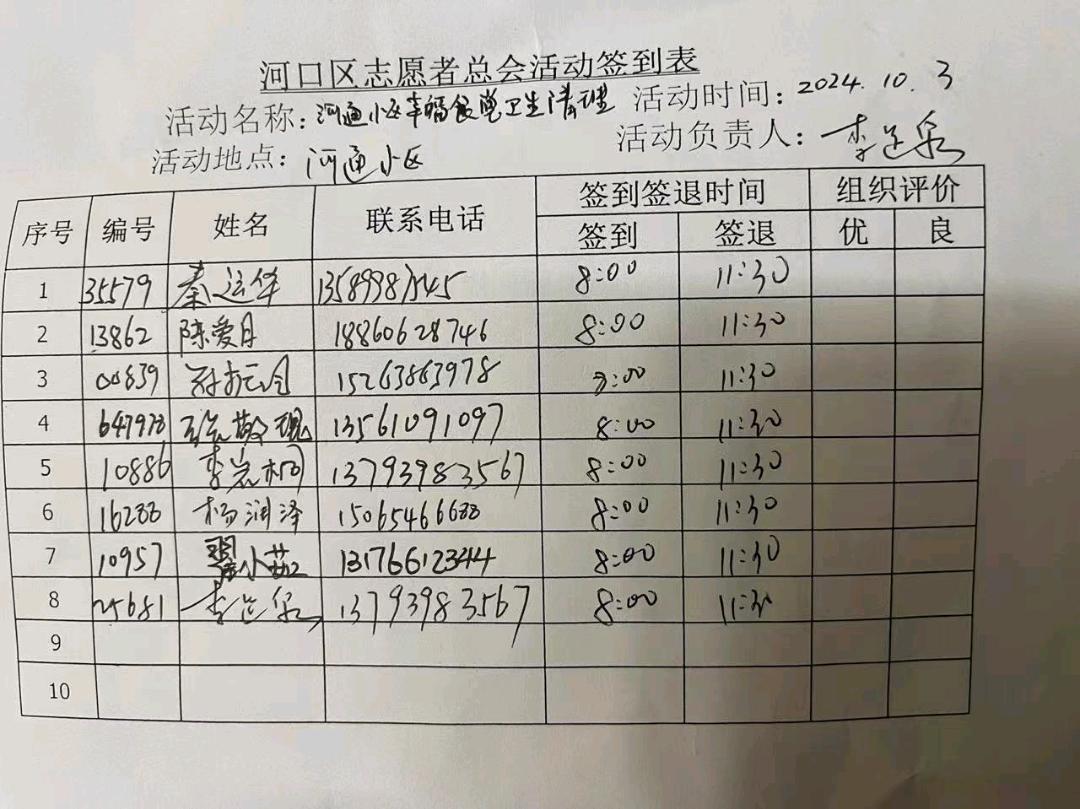 河口区志愿者总会活动签到表
活动名称：河通小区幸福食堂卫生清理 活动时间：2024.10.3
活动地点：河通小区 活动负责人：李
序号 编号 姓名 联系电话 签到签退时间 组织评价
签到 签退 优 良
1 35579 秦运华 8:00 11:30
2 13862 陈爱月 18860628746 8:00 11:30
3 00839 15263863978 8:00 11:30
4 13561091097 8:00 11:30
5 10886 李 13793983567 8:00 11:30
6 16288 杨润泽 15065466688 8:00 11:30
7 10957 小茹 13176612344 8:00 11:30
8 25681 李 13793983567 8:00 11:30
9
10